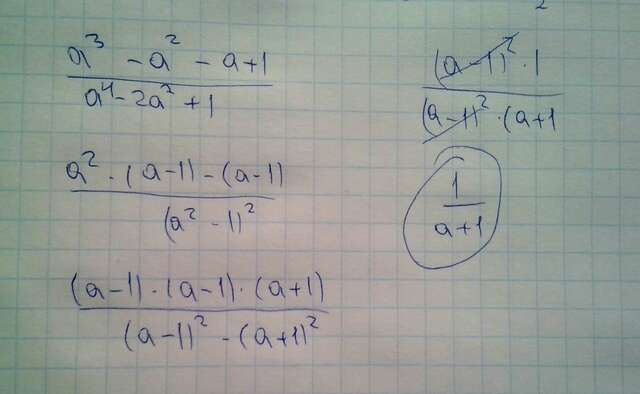 a³ - a² - a + 1
a⁴ - 2a² + 1
a² · (a-1) - (a-1)
(a² - 1)²
(a-1) · (a-1) · (a+1)
(a-1)² - (a+1)²
2
(a-1)² · 1
(a-1)² · (a+1
1
a+1